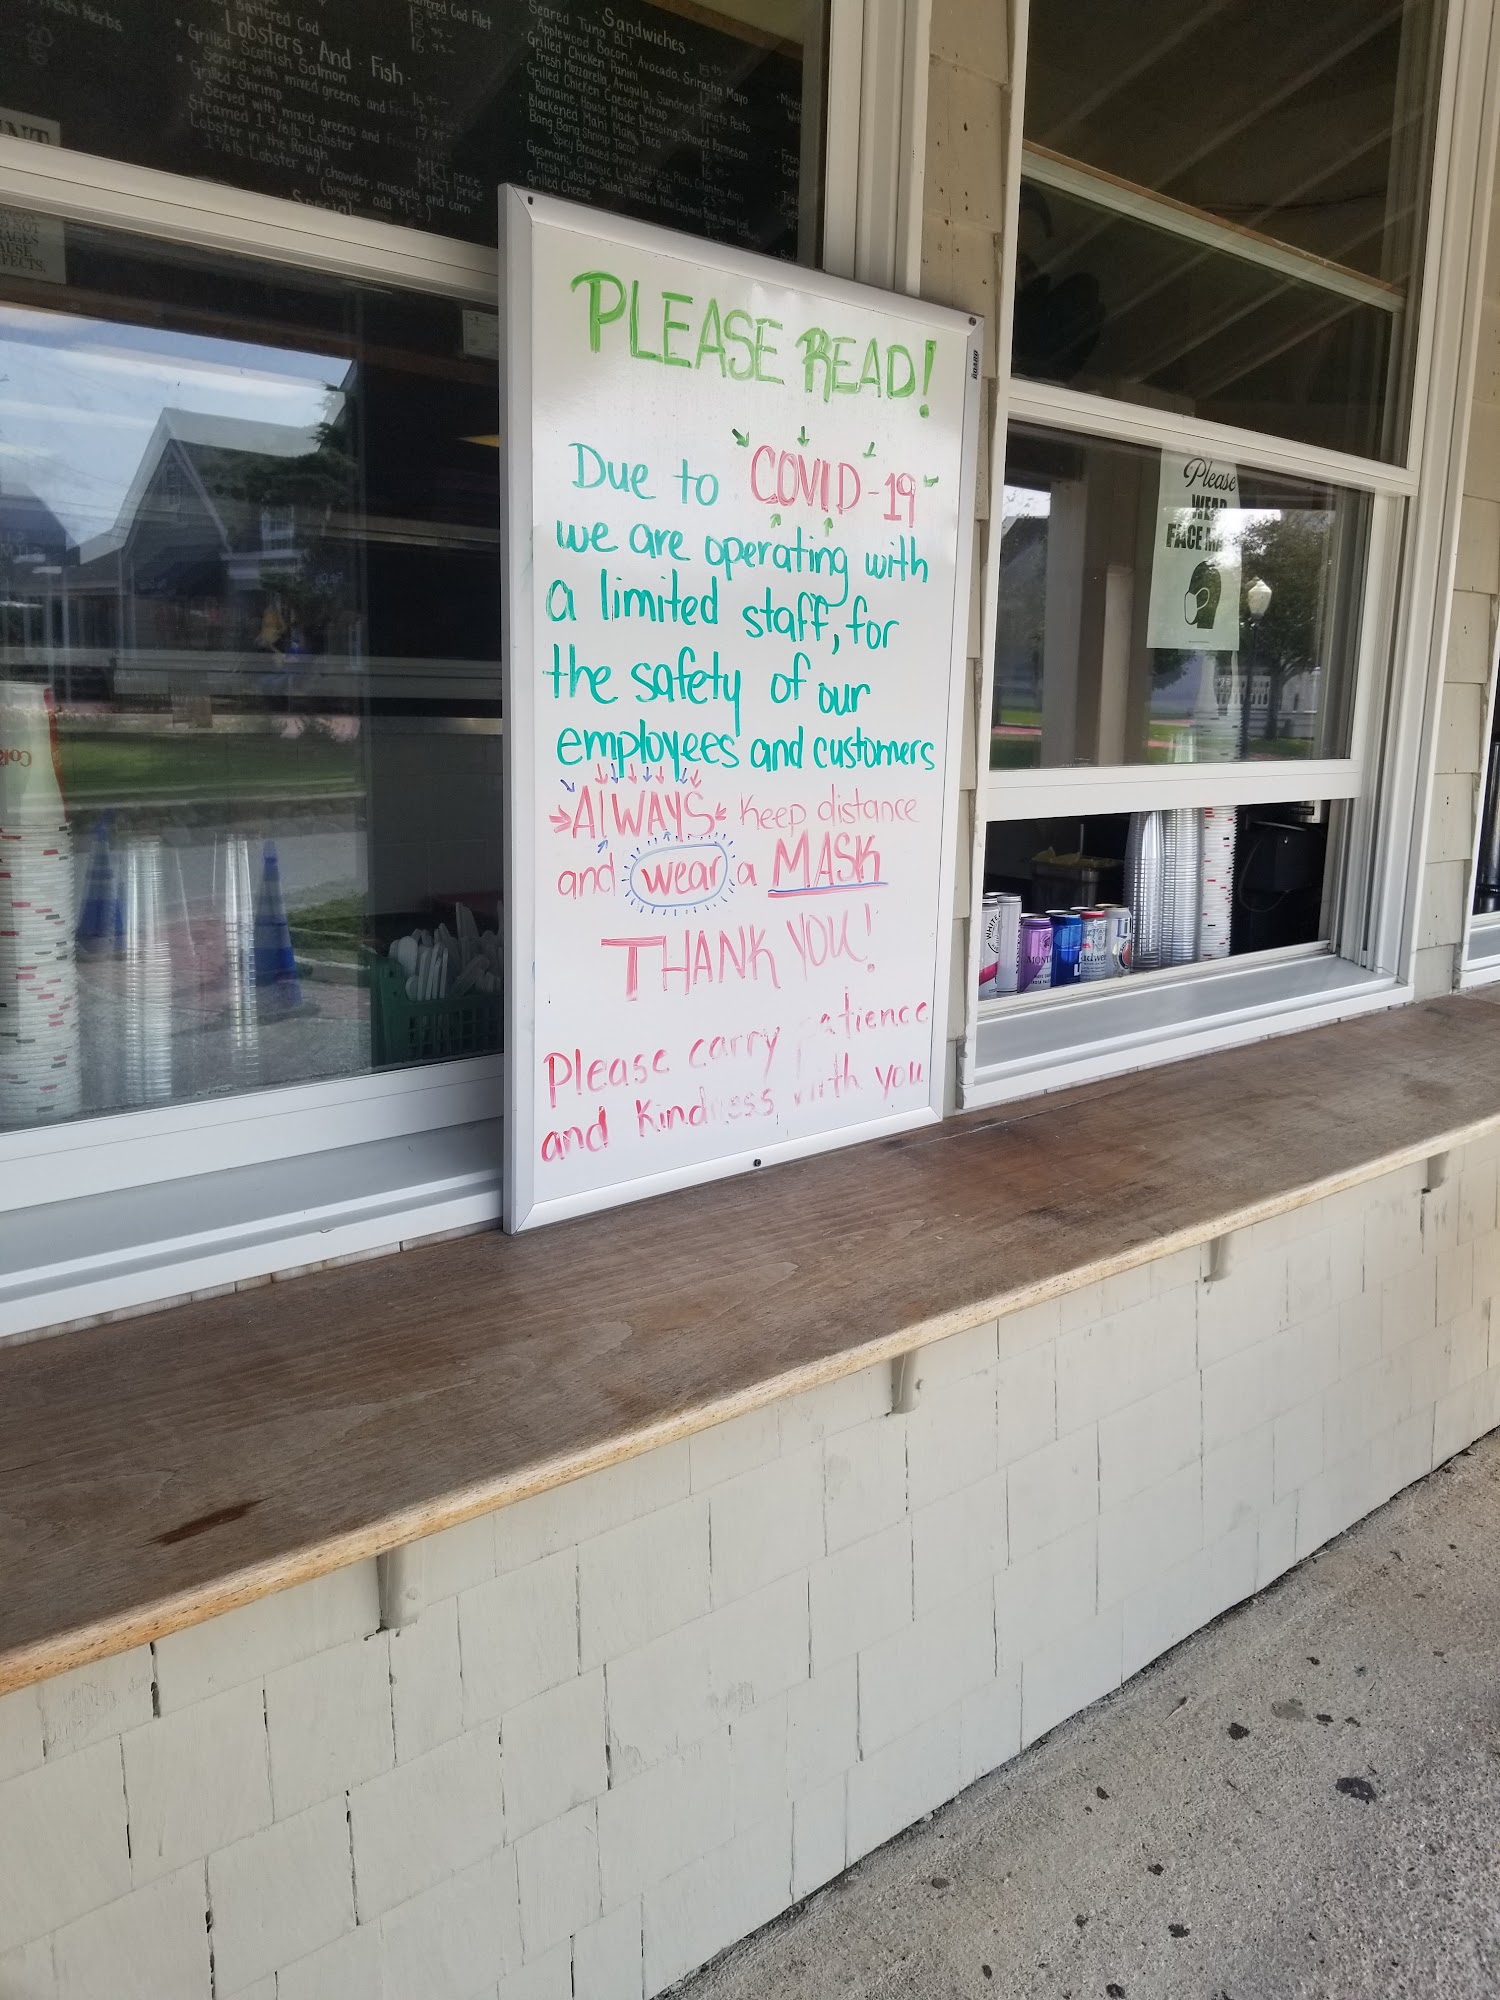 Fresh Herbs
20
Battered Cod
Lobsters And Fish
* Grilled Scottish Salmon
Served with mixed greens and French Fries
* Grilled Shrimp
Served with mixed greens and French Fries
Steamed 1 1/8 lb Lobster
MKT price
Lobster in the Rough
MKT price
1 1/8 lb Lobster w/ chowder, mussels and corn
(bisque add $1-2)
Specials
Cod Filet
15.95-
16.95-
16.95-
17.95-
Sandwiches
Seared Tuna BLT
Applewood Bacon, Avocado, Sriracha Mayo
Grilled Chicken Panini
Fresh Mozzarella, Arugula, Sundried Tomato Pesto
Grilled Chicken Caesar Wrap
Romaine, House Made Dressing, Shaved Parmesan
Blackened Mahi Mahi Taco
Bang Bang Shrimp Tacos
Spicy Breaded Shrimp, Lettuce, Pico, Cilantro Aioli
Gosman's Classic Lobster Roll
Fresh Lobster Salad, Toasted New England Bun, Green Leaf Lettuce
Grilled Cheese
PLEASE READ!
Due to COVID-19
we are operating with
a limited staff, for
the safety of our
employees and customers
AlWAYS keep distance
and wear a MASK
THANK YOU!
Please carry patience
and kindness with you
Please
WEAR
FACE MA